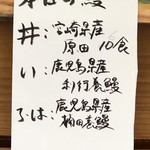 丼:宮崎県産
原田 10/食
い:鹿児島県産
利行養鰻
ふは:鹿児島県産
楠田養鰻